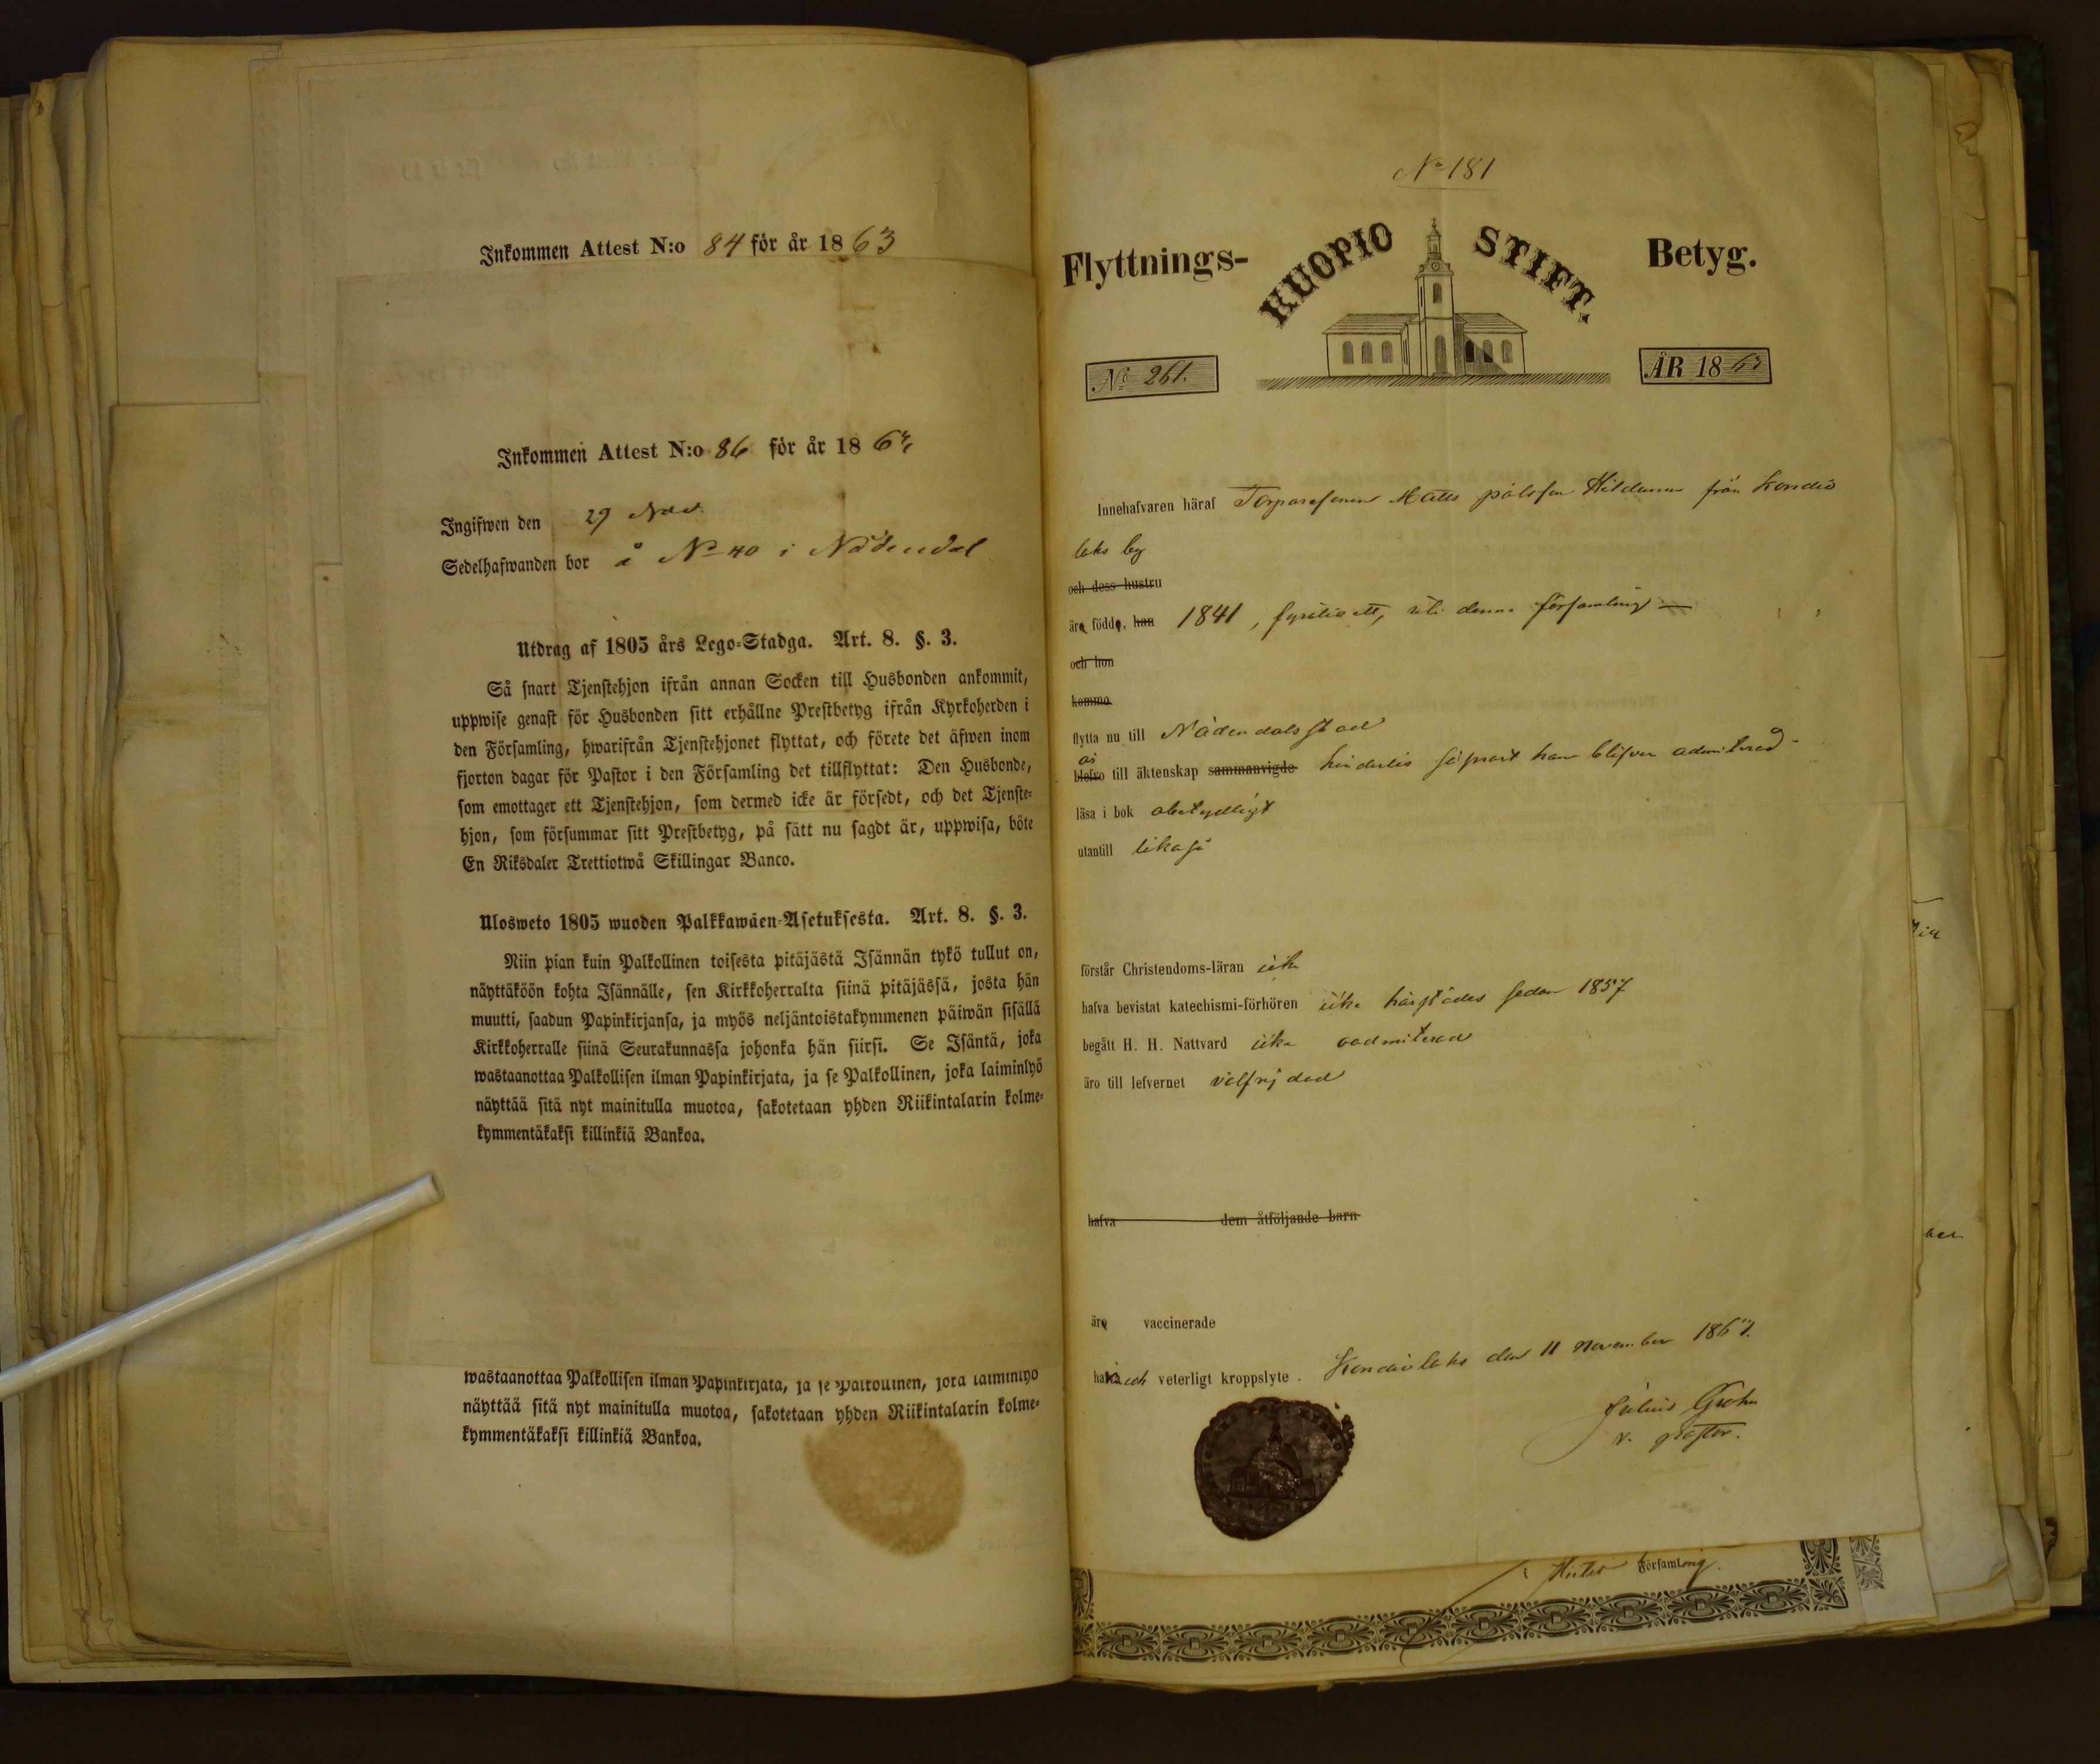 Inkommen Attest N:o 84 för år 1863
Inkommen Attest N:o 86 för år 1863
Ingifwen den 29 Nov.
Sedelhafwanden bor å No 40 i Nådendal
Utdrag af 1805 års Lego-Stadga. Art. 8. §. 3.
Så snart Tjenstehjon ifrån annan Socken till Husbonden ankommit,
uppwise genast för Husbonden sitt erhållne Prestbetyg ifrån Kyrkoherden i
den Församling, hwarifrån Tjenstehjonet flyttat, och förete det äfwen inom
fjorton dagar för Pastor i den Församling det tillflyttat: Den Husbonde,
som emottager ett Tjenstehjon, som dermed icke är försedt, och det Tjenste-
hjon, som försummar sitt Prestbetyg, på sätt nu sagdt är, uppwisa, böte
En Riksdaler Trettiotwå Skillingar Banco.
Ulosweto 1805 wuoden Palkkawäen-Asetuksesta. Art. 8. §. 3.
Niin pian kuin Palkollinen toisesta pitäjästä Isännän tykö tullut on,
näyttäköön kohta Isännälle, sen Kirkkoherralta siinä pitäjässä, josta hän
muutti, saadun Papinkirjansa, ja myös neljäntoistakymmenen päiwän sisällä
Kirkkoherralle siinä Seurakunnassa johonka hän siirsi. Se Isäntä, joka
wastaanottaa Palkollisen ilman Papinkirjata, ja se Palkollinen, joka laiminlyö
näyttää sitä nyt mainitulla muotoa, sakotetaan yhden Riikintalarin kolme-
kymmentäkaksi killinkiä Bankoa.
wastaanottaa Palkollisen ilman Papinkirjata, ja se Palkollinen, joka laiminlyö
näyttää sitä nyt mainitulla muotoa, sakotetaan yhden Riikintalarin kolme-
kymmentäkaksi killinkiä Bankoa.
No 181
Flyttnings- KUOPIO STIFT. Betyg.
No 261. ÅR 1863
Innehafvaren häraf Torparesonen Matts Pålsson Hildunen från Kondio
laks by
och dess hustru
äro födde, han 1841, fyratioett, uti denna församling
och hon
komma
flytta nu till Nådendals stad
är
blefvo till äktenskap sammanvigde hinderlös såsnart han blifver admitterad
läsa i bok obetydligt
utantill likaså
förstår Christendoms-läran icke
hafva bevistat katechismi-förhören icke härstädes sedan 1857
begått H. H. Nattvard icke oadmitterad
äro till lefvernet välfrejdad
hafva dem åtföljande barn
äro vaccinerade
har ich veterligt kroppslyte. Kondiolaks den 11 November 1863.
Julius Grohn
v. pastor.
Församling.